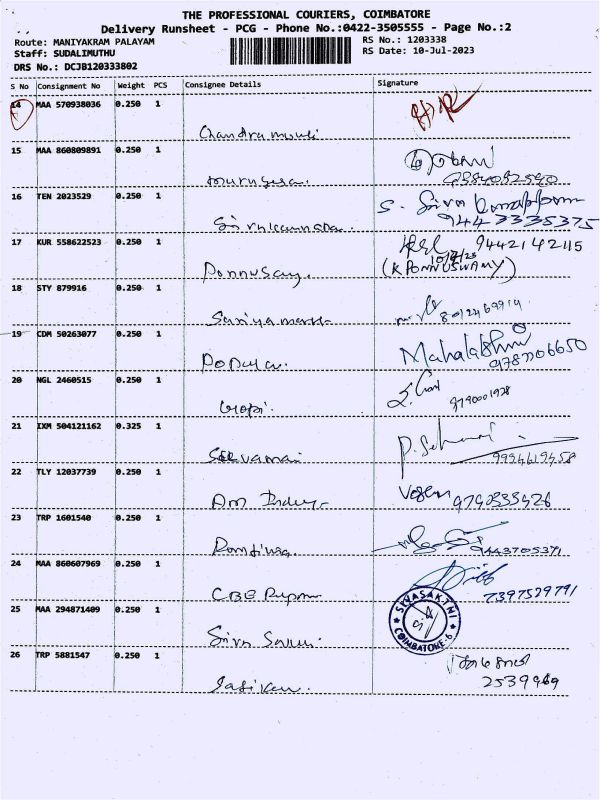 THE PROFESSIONAL COURIERS, COIMBATORE
Delivery Runsheet - PCG - Phone No.:0422-3505555 - Page No.:2
Route: MANIYAKRAM PALAYAM
RS No.: 1203338
Staff: SUDALIMUTHU
RS Date: 10-Jul-2023
DRS No.: DCJB120333802
S No Consignment No Weight PCS Consignee Details Signature
14 MAA 570938036 0.250 1
Chandramouli
15 MAA 860809891 0.250 1
16 TEN 2023529 0.250 1
S. Siva
9443335375
17 KUR 558622523 0.250 1
9442142115
10/7/23
Ponnusamy.
(K PONNUSWAMY)
18 STY 879916 0.250 1
19 CDM 50263077 0.250 1
Mahalakshmi
Popular.
20 NGL 2460515 0.250 1
Gopi
9790001978
21 IXM 504121162 0.325 1
Selvamani
9994619458
22 TLY 12037739 0.250 1
9790333426
23 TRP 1601540 0.250 1
9443705371
24 MAA 860607969 0.250 1
CBE
7397529791
25 MAA 294871409 0.250 1
SIVASAKTHI
COIMBATORE-6
Siva
26 TRP 5881547 0.250 1
2539969